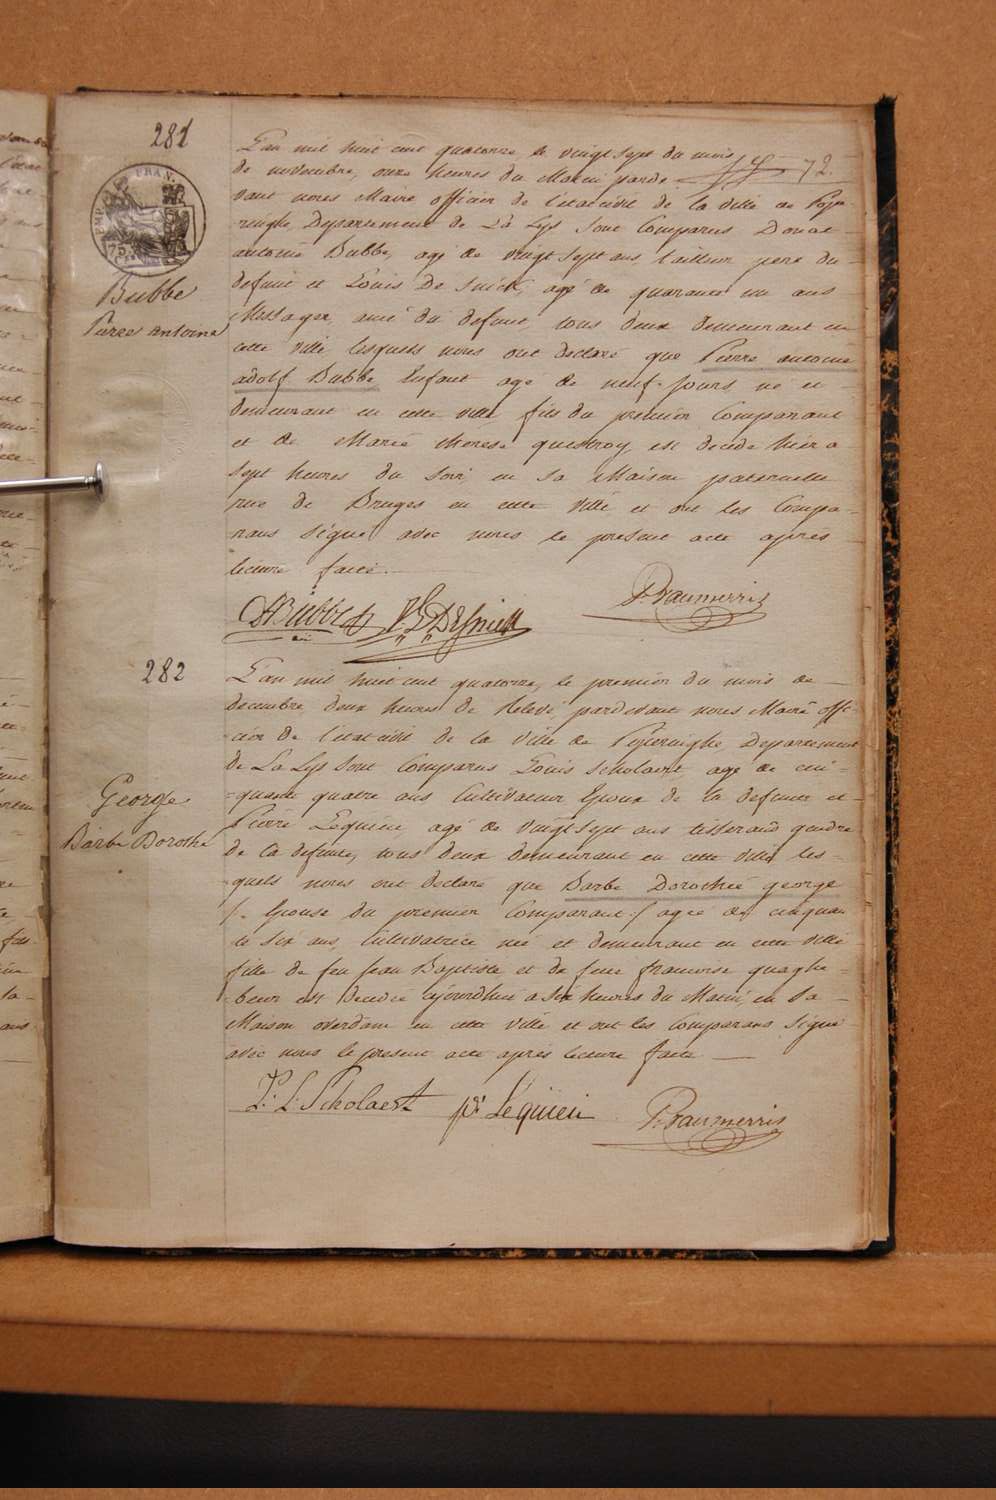 281
L'an mil huit cent quatorze, le vingt sept du mois
de novembre, onze heures du Matin parde- 72.
vant nous Maire officier de l'état civil de la ville de Pope-
ringhe Departement de La Lys sont Comparus Donat
antoine Bubbe, agé de vingt sept ans, tailleur pere du
defunt et Louis De Snick, agé de quarante un ans
Messager, ami du defunt, tous deux demeurant en
cette ville lesquels nous ont declaré que Pierre antoine
adolf Bubbe Enfant agé de neuf jours né et
demeurant en cette ville, fils du premier Comparant
et de Marie therese questroy est decede hier a
sept heures du soir, en sa Maison paternelle
rue de Bruges en cette ville, et ont les Compa-
rans signé avec nous le present acte après
lecture faite.
EMP FRAN.
75
Bubbe
Pierre Antoine
DABubbe L DeSnick P. Vaumerris
282
L'an mil huit cent quatorze, le premier du mois de
decembre, deux heures de Relevé, pardevant nous Maire offi-
cier de l'état civil de la ville de Poperinghe Departement
de La Lys sont Comparus Louis Scholaert agé de cin-
quante quatre ans Cultivateur Epoux de la defunte et
Pierre Lequieu, agé de vingt sept ans tisserand gendre
de la defunte, tous deux demeurant en cette ville les-
quels nous ont declaré que Barbe Dorothée george
/. Epouse du premier Comparant / agée de cinquan
te six ans, Cultivatrice née et demeurant en cette ville
fille de feu Jean Baptiste, et de feue francoise quaghe-
beur est decedée ajourdhui a six heures du Matin, en sa
Maison overdam en cette ville et ont les Comparans signé
avec nous le present acte après lecture faite
George
Barbe Dorothé
P: L: Scholaert pr Lequieu P. Vaumerris